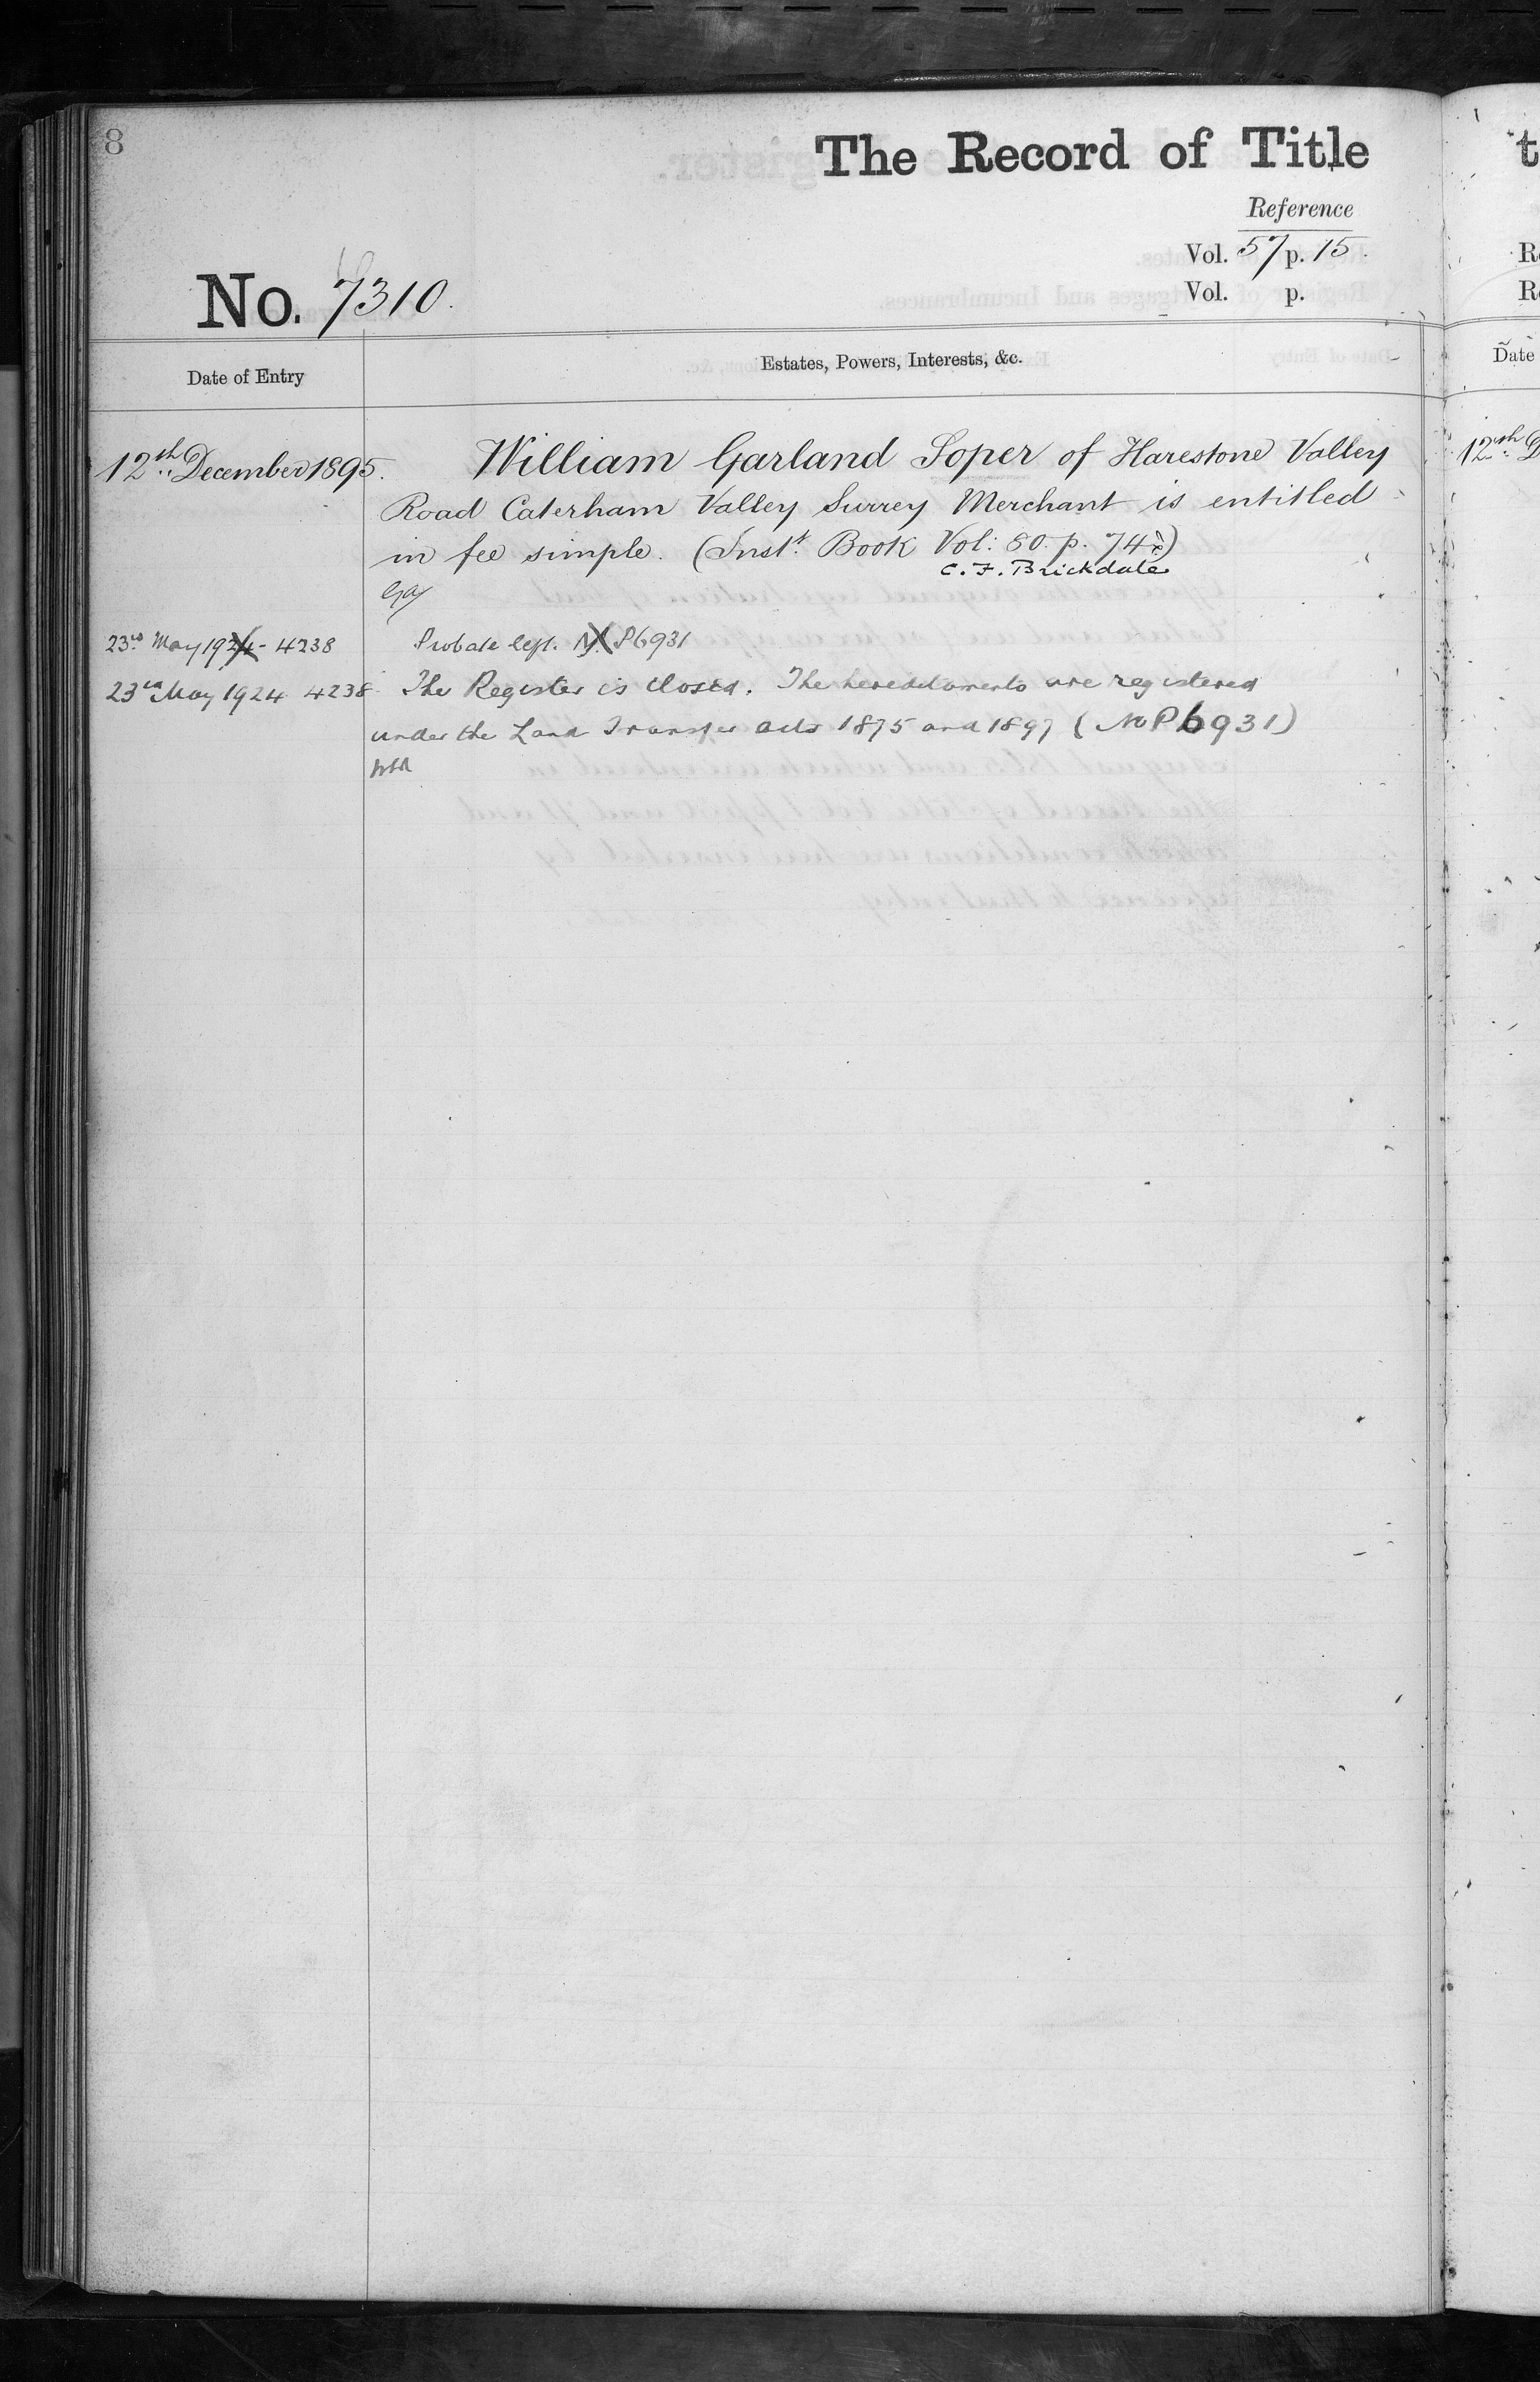 8
The Record of Title
Reference
Vol. 57 p. 15.
No. 7310.
Vol. p.
Date of Entry
Estates, Powers, Interests, &c.
12th December 1895. William Garland Soper of Harestone Valley
Road Caterham Valley Surrey Merchant is entitled
in fee simple. (Inst.t Book Vol: 80. p. 74
C. F. Brickdale
23rd May 1924 - 4238 Probate left. P6931
23rd May 1924 4238 The Register is closed. The hereditaments are registered
under the Land Transfer Acts 1875 and 1897 (No P6931)
t
R
R
Date
12th D